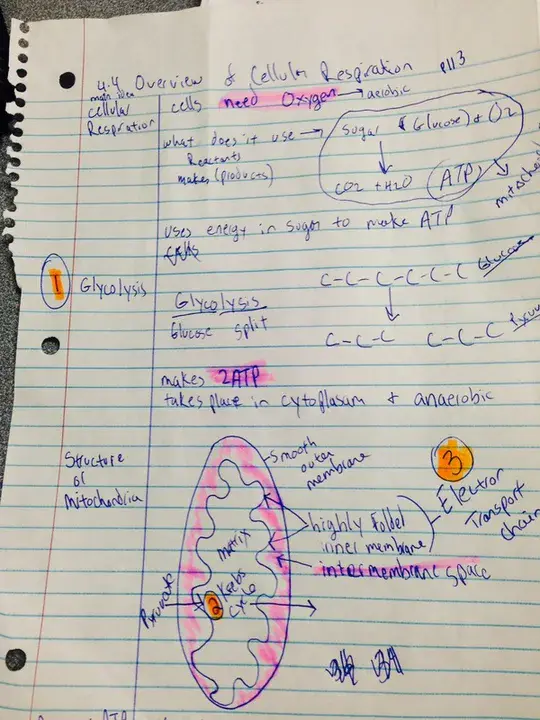 4.4 Overview of Cellular Respiration p113
main idea
cellular
Respiration
cells need Oxygen → aerobic
what does it use →
Reactants
makes (products)
Sugar (Glucose) + O2
CO2 + H2O ATP
uses energy in sugar to make ATP
1 Glycolysis
Glycolysis
Glucose split
C-C-C-C-C-C Glucose
C-C-C C-C-C
makes 2ATP
takes place in cytoplasum + anaerobic
Structure
of
Mitochondria
Smooth
outer
membrane
3
Electron
Transport
chain
highly folded
inner membrane
intermembrane space
matrix
Pyruvate
2 Krebs
cycle